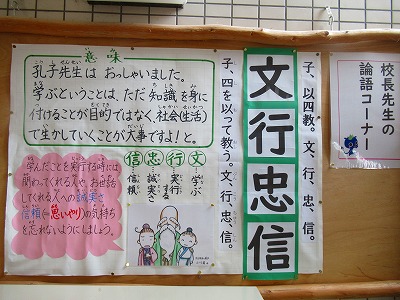 校長先生の
論語コーナー
子、以四教。文、行、忠、信。
文行忠信
子、四を以って教う。文、行、忠、信。
意味
孔子先生はおっしゃいました。
学ぶということは、ただ知識を身に
付けることが目的ではなく、社会(生活)
で生かしていくことが大事ですよ!と。
信忠行文
文 学ぶ
行 実行する
忠 誠実さ
信 信頼
学んだことを実行する時には
関わってくれる人や、お世話
してくれる人への誠実さ
信頼(=思いやり)の気持ち
を忘れないようにしましょう。